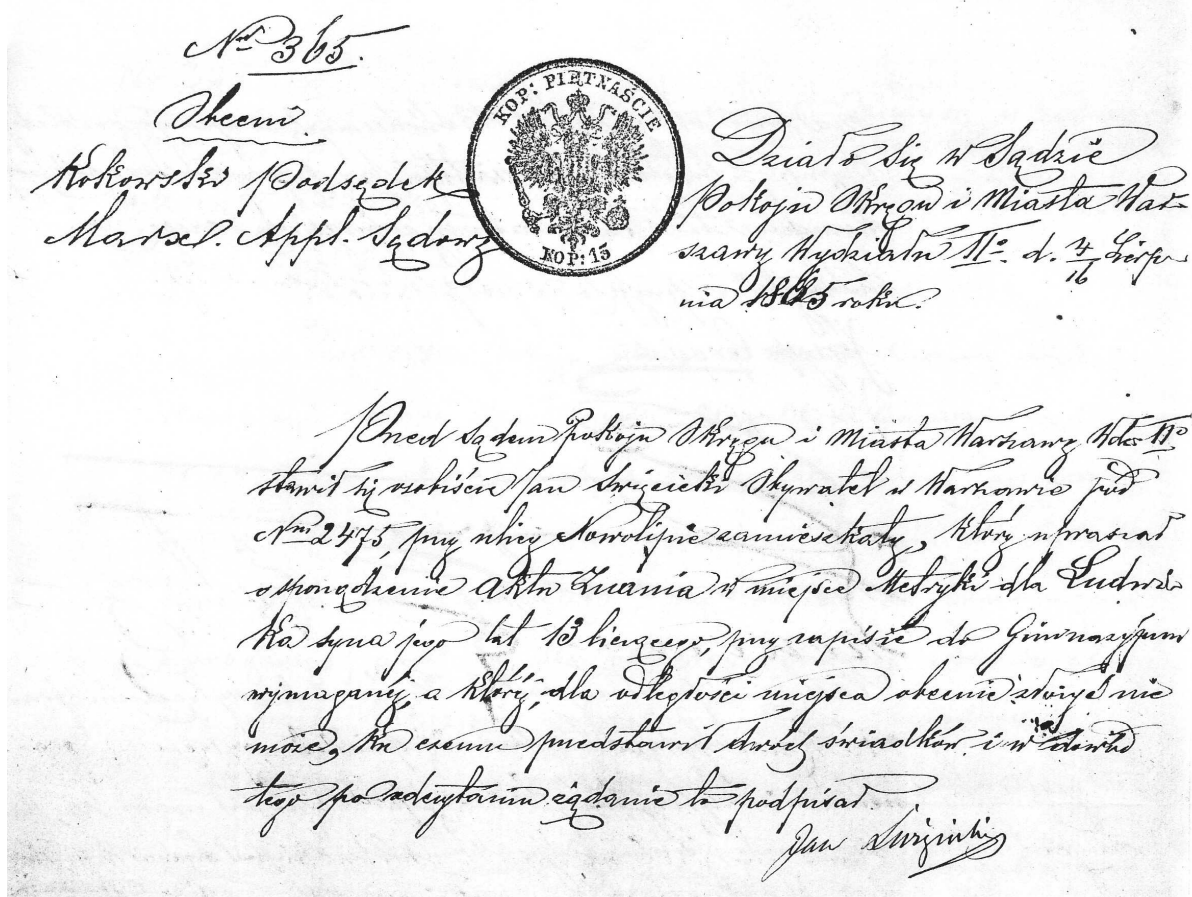 Nr 365.
Obecni
Kokowski Podsędek
Marxel. Appl. Sądowy
KOP: PIĘTNAŚCIE
KOP: 15
Działo się w Sądzie
Pokoju Okręgu i Miasta War-
szawy Wydziału IIo. d. 4/16 Sierp-
nia 1865 roku.
Przed Sądem Pokoju Okręgu i Miasta Warszawy Wdu IIo
stawił się osobiście Jan Święcicki Obywatel w Warszawie pod
Nrm 2475, przy ulicy Nowolipie zamieszkały, który upraszał
o sporządzenie Aktu Znania w miejsce Metryki dla Ludwi-
ka syna jego lat 13 liczącego, przy zapisie do Gimnazyjum
wymaganej, a której, dla odległości miejsca obecnie złożyć nie
może, ku czemu przedstawił dwóch świadków i w dowód
tego po odczytaniu żądanie to podpisał.
Jan Święcicki